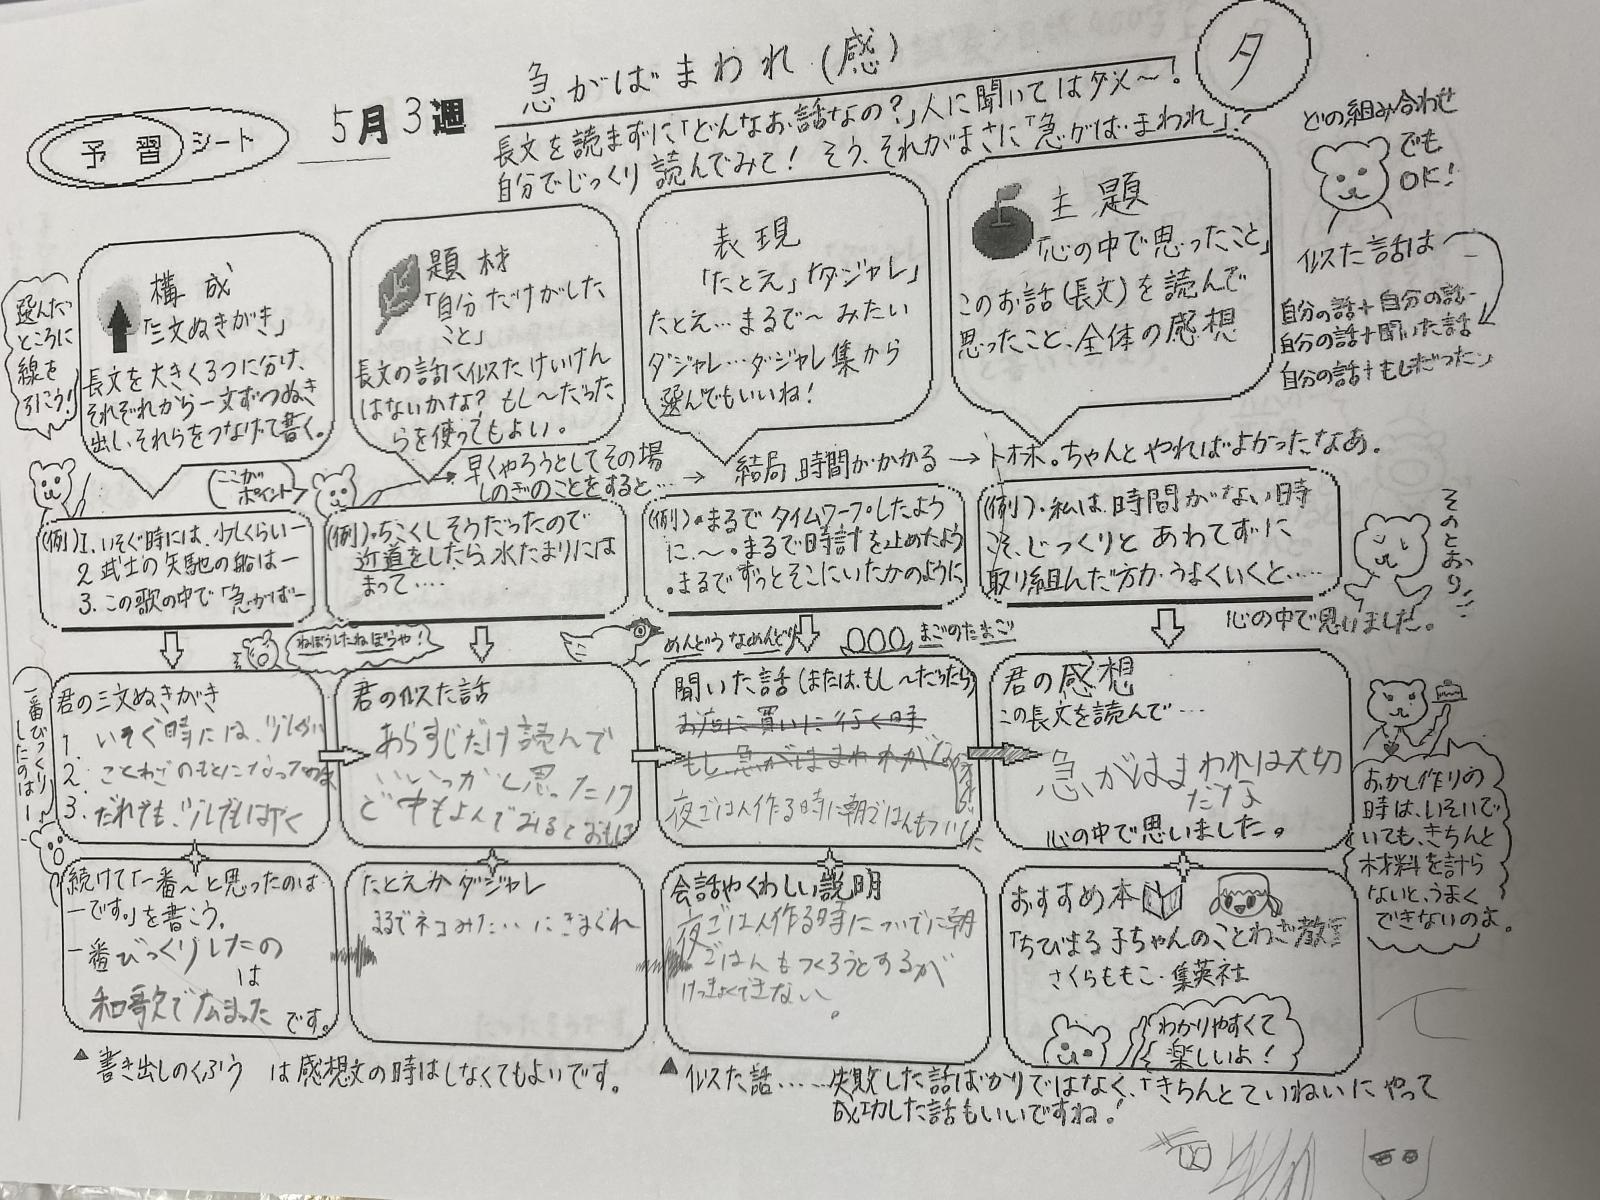 予習シート
5月3週
急がばまわれ(感)
夕
長文を読まずに「どんなお話なの?」人に聞いてはダメ〜!
自分でじっくり読んでみて! そう、それがまさに「急がばまわれ」!
どの組み合わせ
でも
OK!
似た話は
自分の話+自分の話
自分の話+聞いた話
自分の話+もしだったら
選んだ
ところに
線を
引こう!
構成
「三文ぬきがき」
長文を大きく3つに分け、
それぞれから一文ずつぬき
出し、それらをつなげて書く。
題材
「自分だけがした
こと」
長文の話に似たけいけん
はないかな? もし〜だった
らを使ってもよい。
表現
「たとえ」「ダジャレ」
たとえ…まるで〜みたい
ダジャレ…ダジャレ集から
選んでもいいね!
主題
「心の中で思ったこと」
このお話(長文)を読んで
思ったこと、全体の感想
ここが
ポイント
早くやろうとしてその場
しのぎのことをすると…
→ 結局、時間がかかる → トホホ。ちゃんとやればよかったなあ。
(例)1. いそぐ時には、少しくらいー
2 武士の矢馳の船はー
3. この歌の中で「急がばー
(例)・ちこくしそうだったので
近道をしたら、水たまりには
まって……
(例)・まるでタイムワープしたよう
に〜。・まるで時計を止めたよう
・まるでずっとそこにいたかのように
(例)・私は、時間がない時
こそ、じっくりとあわてずに
取り組んだ方がうまくいくと……
心の中で思いました。
そのとおり!!
ねぼうしたねぼうや!
めんどうなめんどり
まごのたまご
一番びっくり
したのはー
君の三文ぬきがき
1. いそぐ時には、少しくらい
2. ことわざのもとになって
3. だれでも、少しでもはやく
君の似た話
あらすじだけ読んで
いいっかと思ったけ
ど中もよんでみるとおもしろ
聞いた話(または、もし〜だったら)
お店に買いに行く時
もし、急がばまわれが
夜ごはん作る時に朝ごはんも
君の感想
この長文を読んで…
急がばまわれは大切
だな
心の中で思いました。
おかし作りの
時は、いそいで
いても、きちんと
材料を計ら
ないと、うまく
できないのよ。
続けて「一番〜と思ったのは
ーです。」を書こう。
一番びっくりしたの
は
和歌で広まった です。
たとえかダジャレ
まるでネコみた…にきまぐれ
会話やくわしい説明
夜ごはん作る時についでに朝
ごはんもつくろうとするが
けっきょくできない。
おすすめ本
「ちびまる子ちゃんのことわざ教室
さくらももこ・集英社
わかりやすくて
楽しいよ!
▲書き出しのくふう は感想文の時はしなくてもよいです。
▲似た話……失敗した話ばかりではなく、「きちんとていねいにやって
成功した話もいいですね!